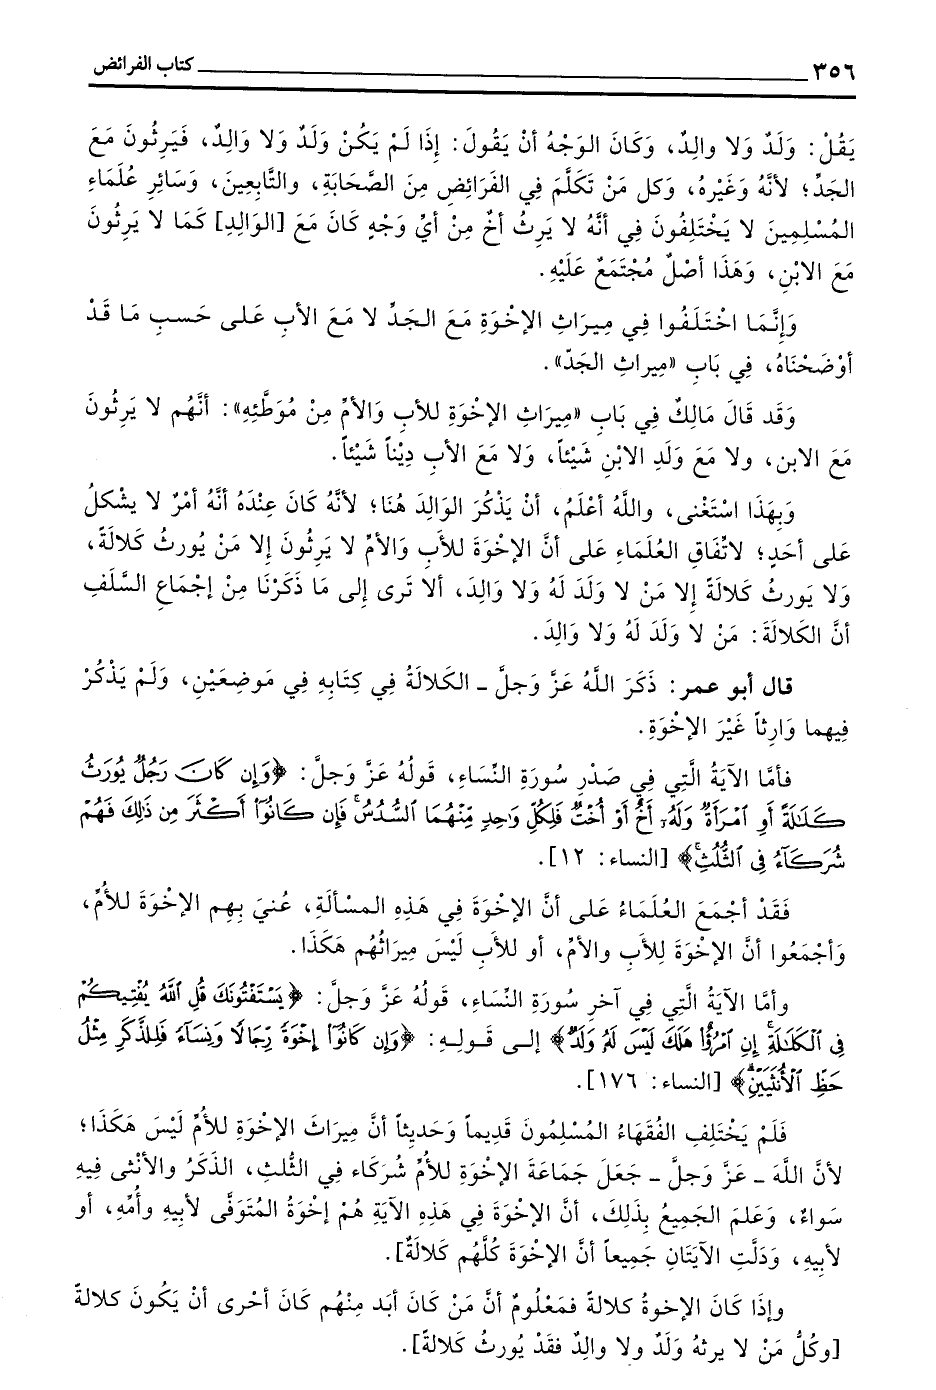 ٣٥٦ كتاب الفرائض
يَقُلْ: وَلَدٌ وَلا والِدٌ، وَكَانَ الوَجْهُ أنْ يَقُولَ: إذَا لَمْ يَكُنْ وَلَدٌ وَلا وَالِدٌ، فَيَرِثُونَ مَعَ
الجَدِّ؛ لأنَّهُ وَغَيْرِهُ، وَكل مَنْ تَكَلَّمَ فِي الفَرَائضِ مِنَ الصَّحَابَةِ، والتَّابِعِينَ، وَسَائِرِ عُلَمَاءِ
المُسْلِمِينَ لا يَخْتَلِفُونَ فِي أنَّهُ لا يَرِثُ أخٌ مِنْ أيِّ وَجْهٍ كَانَ مَعَ [الوَالِدِ] كَمَا لا يَرِثُونَ
مَعَ الابْنِ، وَهَذَا أصْلٌ مُجْتَمَعٌ عَلَيْهِ.
وَإنَّمَا اخْتَلَفُوا فِي مِيرَاثِ الإخْوَةِ مَعَ الجَدِّ لا مَعَ الأبِ عَلى حَسبِ مَا قَدْ
أوْضَحْنَاهُ، فِي بَابِ «مِيراثِ الجَدّ».
وَقَد قَالَ مَالِكٌ فِي بَابِ «مِيرَاثِ الإخْوَةِ للأبِ وَالأمِّ مِنْ مُوَطَّئِهِ»: أنَّهُم لا يَرِثُونَ
مَعَ الابن، ولا مَعَ وَلَدِ الابْنِ شَيْئاً، وَلا مَعَ الأبِ دِيْناً شَيْئاً.
وَبِهَذَا اسْتَغْنى، واللَّهُ أعْلَمُ، أنْ يَذْكُرَ الوَالِدَ هُنَا؛ لأنَّهُ كَانَ عِنْدَهُ أنَّهُ أمْرٌ لا يشْكلُ
عَلى أحَدٍ؛ لاتِّفَاقِ العُلَمَاءِ عَلى أنَّ الإخْوَةَ للأبِ وَالأمِّ لا يَرِثُونَ إلا مَنْ يُورثُ كَلالَةً،
وَلا يَورثُ كَلالَةً إلا مَنْ لا وَلَدَ لَهُ وَلا وَالِدَ، ألا تَرى إلى مَا ذَكَرْنَا مِنْ إجْمَاعِ السَّلَفِ
أنَّ الكَلالَةَ: مَنْ لا وَلَدَ لَهُ وَلا وَالِدَ.
قال أبو عمر: ذَكَرَ اللَّهُ عَزَّ وَجلَّ ـ الكَلالَةُ فِي كِتَابِهِ فِي مَوضِعَيْنِ، وَلَمْ يَذْكُرْ
فِيهما وَارِثاً غَيْرَ الإخْوَةِ.
فأمَّا الآيَةُ الَّتِي فِي صَدْرِ سُورَةِ النِّسَاءِ، قَولُهُ عَزَّ وَجلَّ: ﴿وَإِن كَانَ رَجُلٌ يُورَثُ
كَلَالَةً أَوِ ٱمْرَأَةٌ وَلَهُۥٓ أَخٌ أَوْ أُخْتٌ فَلِكُلِّ وَاحِدٍ مِّنْهُمَا ٱلسُّدُسُ فَإِن كَانُوٓا۟ أَكْثَرَ مِن ذَٰلِكَ فَهُمْ
شُرَكَآءُ فِى ٱلثُّلُثِ﴾ [النساء: ١٢].
فَقَدْ أجْمَعَ العُلَمَاءُ عَلى أنَّ الإخْوَةَ فِي هَذِهِ المسألَةِ، عُنيَ بِهِم الإخْوَةَ للأُمِّ،
وَأجْمَعُوا أنَّ الإخْوَةَ لِلأبِ والأمِّ، أو للأبِ لَيْسَ مِيرَاثُهُم هَكَذَا.
وأمَّا الآيَةُ الَّتِي فِي آخرِ سُورَةِ النِّسَاءِ، قَولُهُ عَزَّ وَجلَّ: ﴿يَسْتَفْتُونَكَ قُلِ ٱللَّهُ يُفْتِيكُمْ
فِى ٱلْكَلَٰلَةِ إِنِ ٱمْرُؤٌا۟ هَلَكَ لَيْسَ لَهُۥ وَلَدٌ﴾ إلى قَولِهِ: ﴿وَإِن كَانُوٓا۟ إِخْوَةً رِّجَالًا وَنِسَآءً فَلِلذَّكَرِ مِثْلُ
حَظِّ ٱلْأُنثَيَيْنِ﴾ [النساء: ١٧٦].
فَلَمْ يَخْتَلِفِ الفُقَهَاءُ المُسْلِمُونَ قَدِيماً وَحَدِيثاً أنَّ مِيرَاثَ الإخْوَةِ للأُمِّ لَيْسَ هَكَذَا؛
لأنَّ اللَّهَ ـ عَزَّ وَجلَّ ـ جَعَلَ جَمَاعَةَ الإخْوَةِ للأُمِّ شُرَكَاء فِي الثُّلثِ، الذَكَرُ والأنْثى فِيهِ
سَواءٌ، وَعَلمَ الجَمِيعُ بِذَلِكَ، أنَّ الإخْوَةَ فِي هَذِهِ الآيَةِ هُمْ إخْوَةُ المُتَوَفَّى لأبيهِ وأُمِّهِ، أو
لأبِيهِ، وَدَلَّتِ الآيَتَانِ جَمِيعاً أنَّ الإخْوَةَ كُلَّهُم كَلالَةٌ].
وإذَا كَانَ الإخوةُ كلالةً فمَعْلُومٌ أنَّ مَنْ كَانَ أبَد مِنْهُم كَانَ أحْرى أنْ يَكُونَ كلالةً
[وكُلُّ مَنْ لا يرثهُ وَلَدٌ ولا والِدٌ فقَدْ يُورثُ كَلالةً].